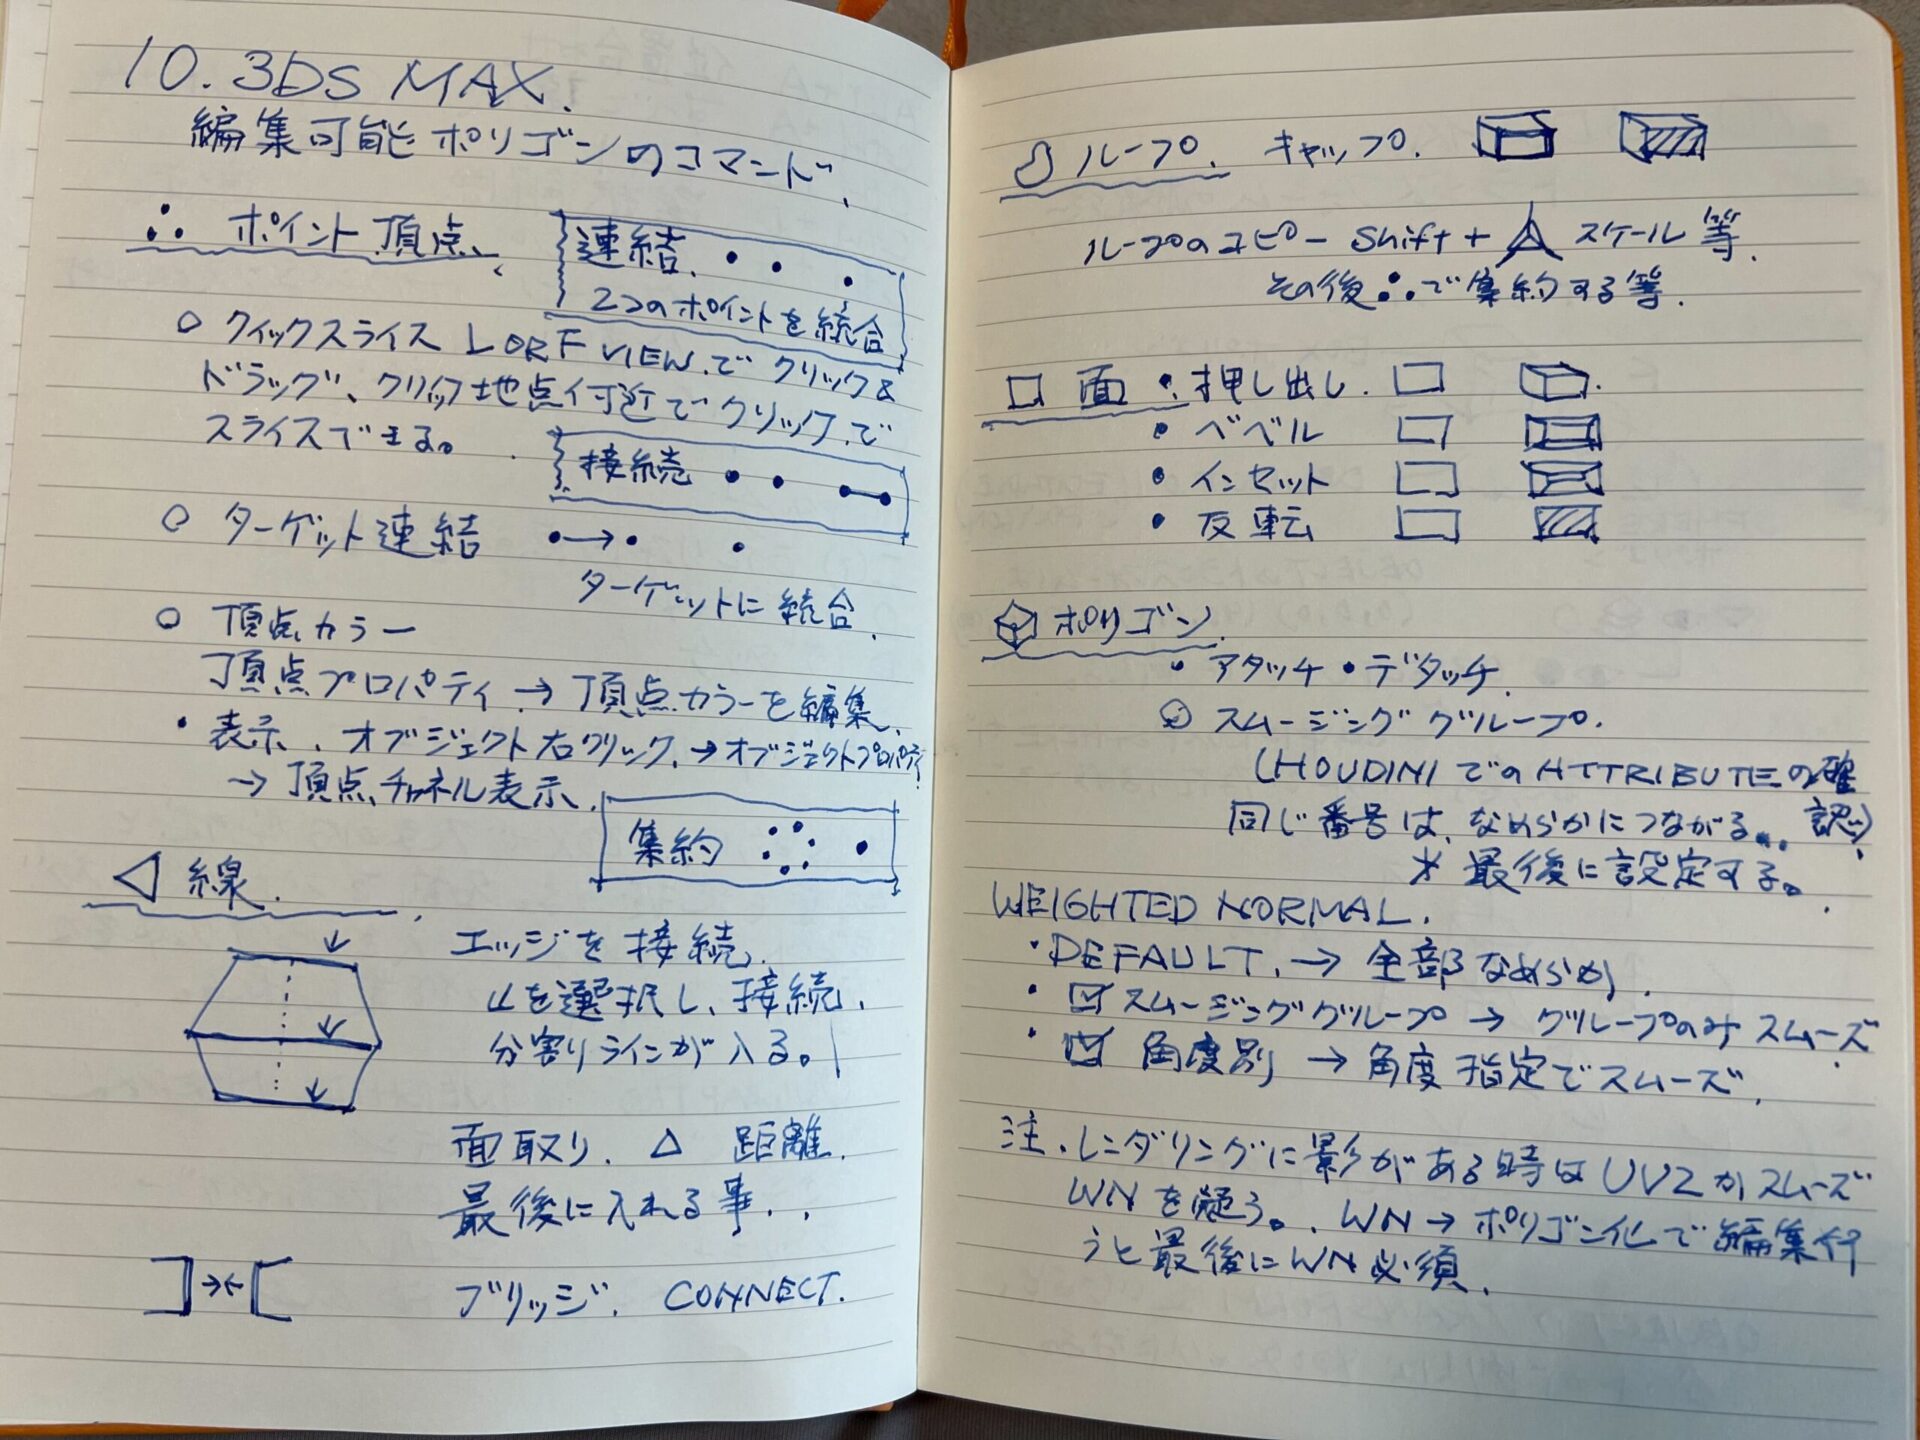 10. 3DS MAX.
編集可能ポリゴンのコマンド.
ポイント 頂点.
連結.
2つのポイントを統合
○ クイックスライス L OR F VIEW.で クリック&
ドラッグ、クリック地点付近でクリック.で
スライスできる。
接続
○ ターゲット連結
ターゲットに統合.
○ 頂点カラー
頂点プロパティ → 頂点カラーを編集.
・表示. オブジェクト右クリック.→オブジェクトプロパティ
→ 頂点チャネル表示.
集約
線.
エッジを接続.
を選択し、接続.
分割ラインが入る。
面取り. △ 距離.
最後に入れる事..
→← ブリッジ. CONNECT.
ループ. キャップ.
ループのコピー Shift + スケール等.
その後 で集約する等.
□ 面 ・押し出し.
・ベベル
・インセット
・反転
ポリゴン.
・アタッチ・デタッチ.
スムージンググループ.
(HOUDINIでのATTRIBUTEの確
認)
同じ番号は、なめらかにつながる..
* 最後に設定する。
WEIGHTED NORMAL.
・DEFAULT. → 全部なめらか.
・☑ スムージンググループ → グループのみスムーズ
・☑ 角度別 → 角度指定でスムーズ.
注. レンダリングに影がある時は UV2かスムーズ
WNを疑う。. WN→ポリゴン化で編集行
うと最後にWN必須.